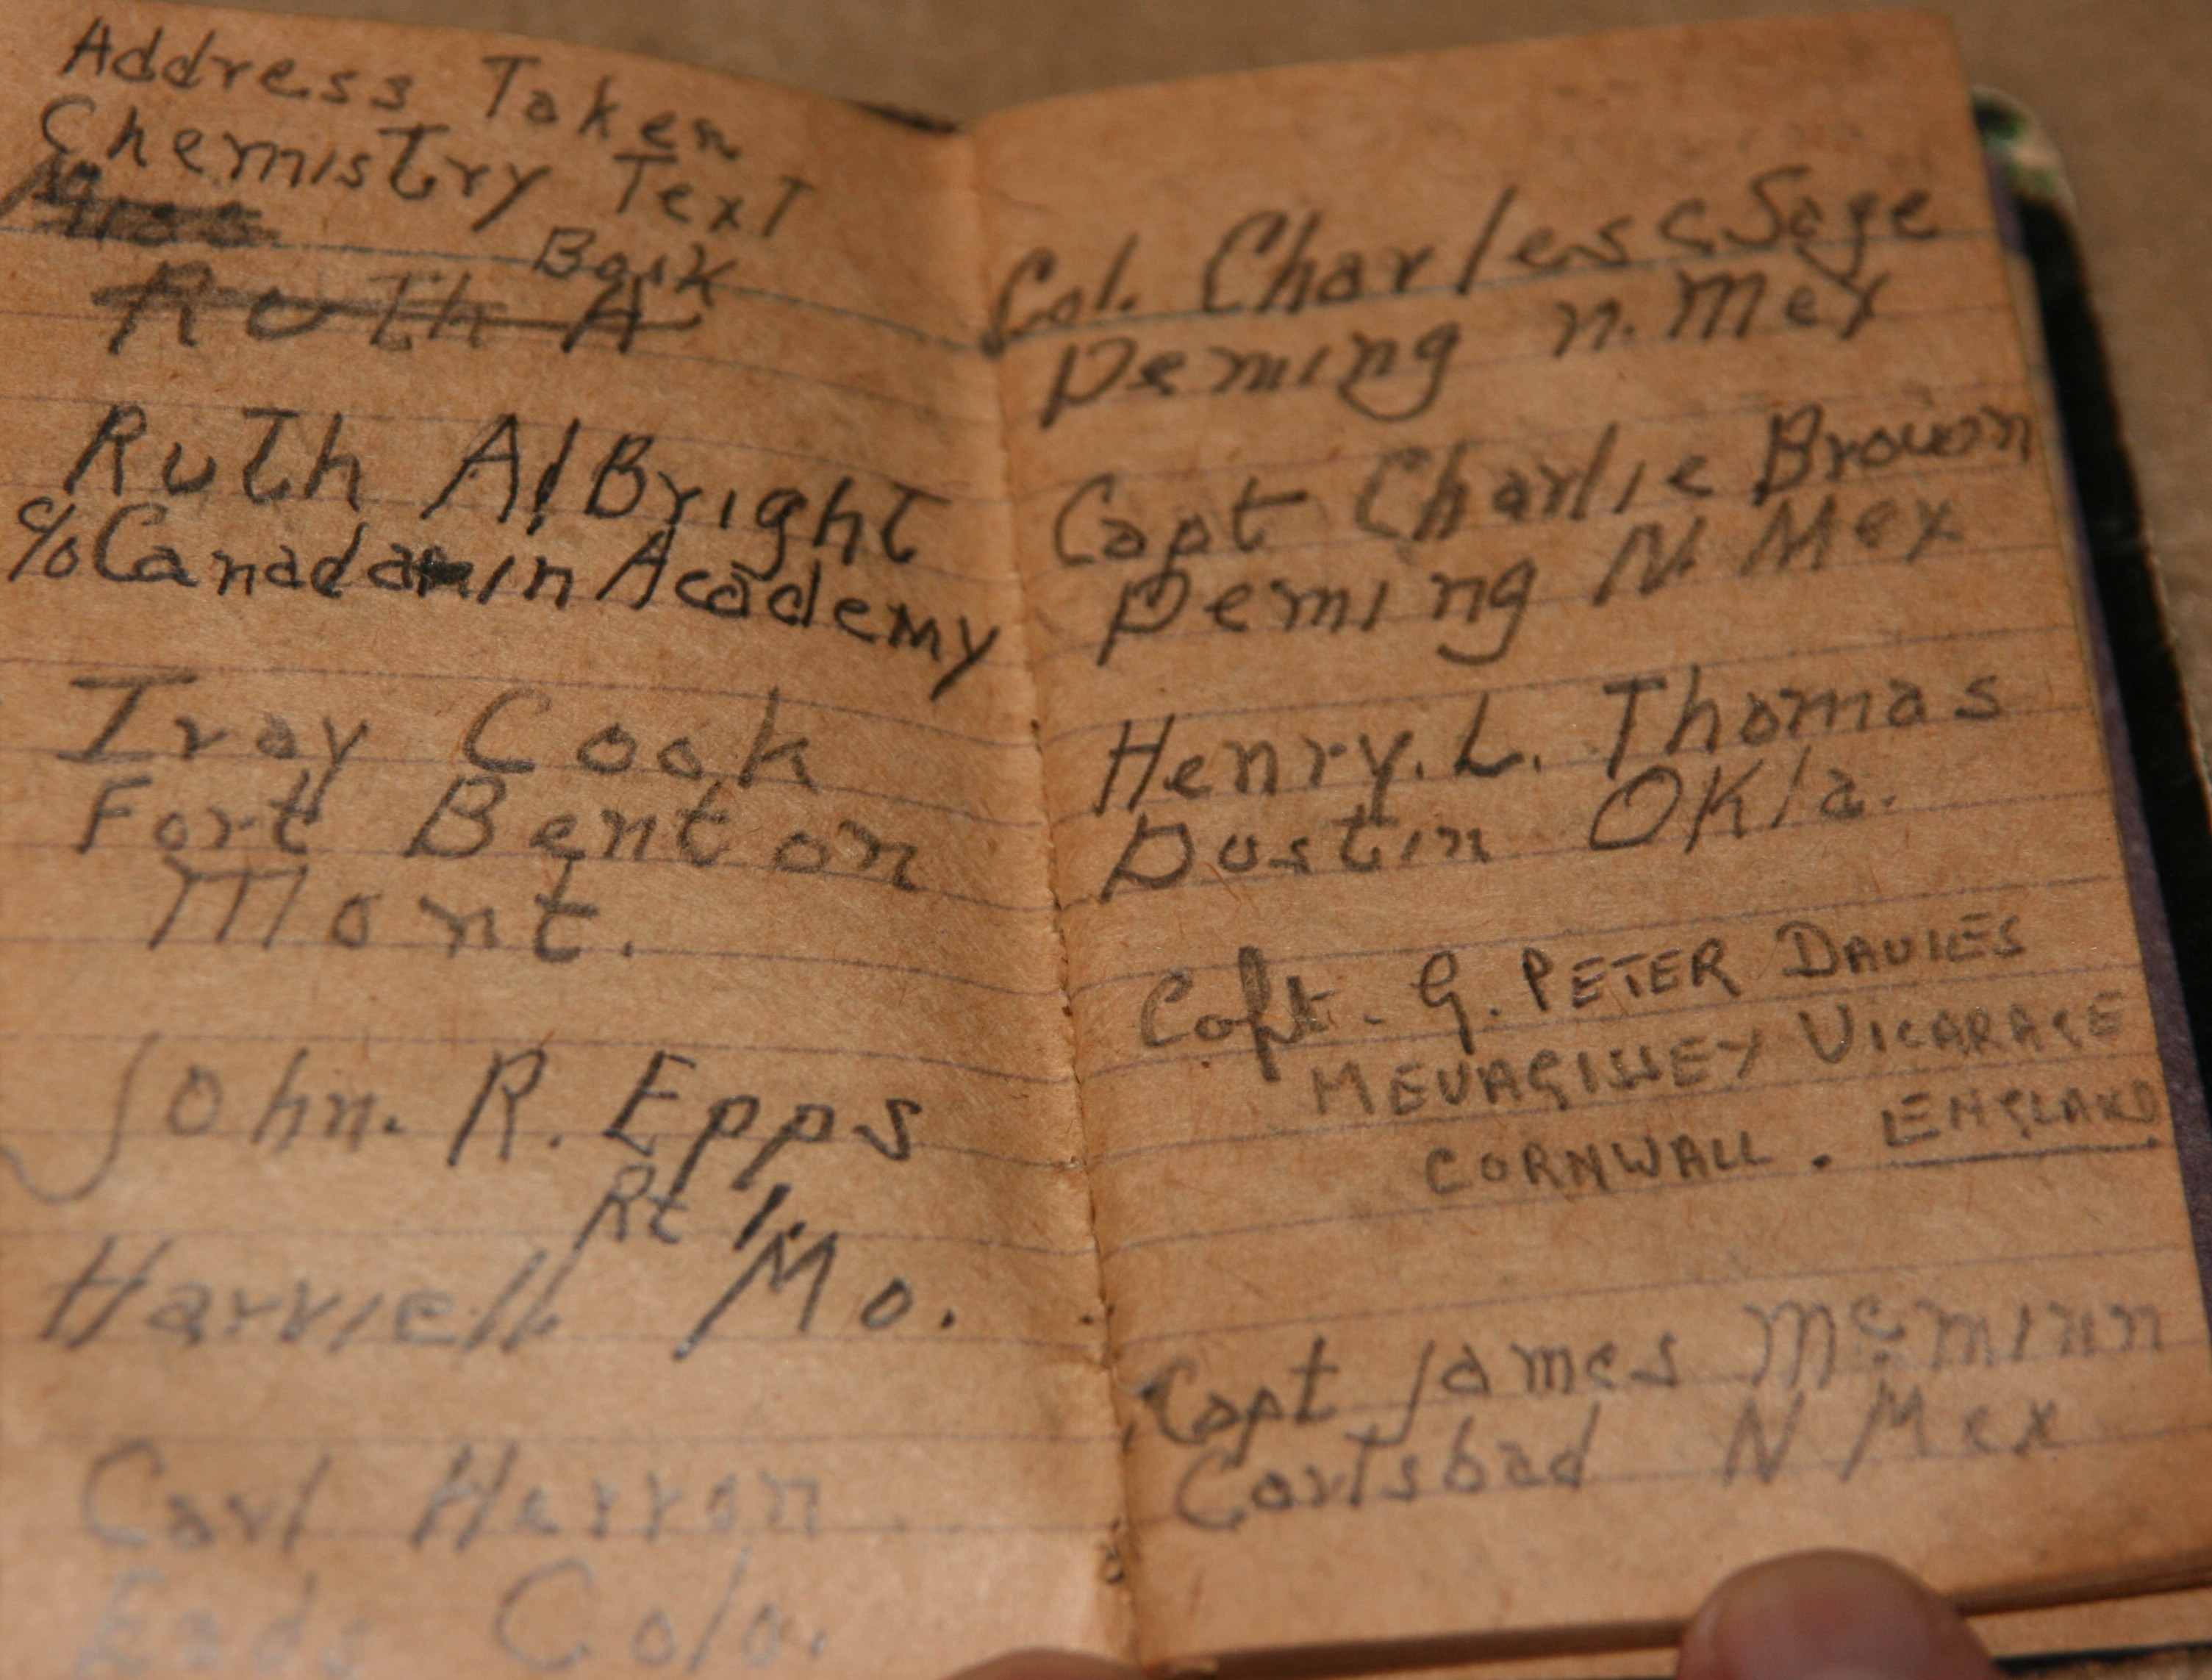 Address Taken
Chemistry Text
Book
Ruth A
Ruth AlBright
℅ Canadain Academy
Iray Cook
Fort Benton
Mont.
John. R. Epps
Rt 1.
Harriell Mo.
Carl Herron
Eads Colo.
Col. Charles C Sage
Deming n. Mex
Capt Charlie Brown
Deming N. Mex
Henry. L. Thomas
Dustin Okla.
Capt. G. PETER DAVIES
MEVAGISSEY VICARAGE
CORNWALL. ENGLAND
Capt James McMinn
Carlsbad N Mex